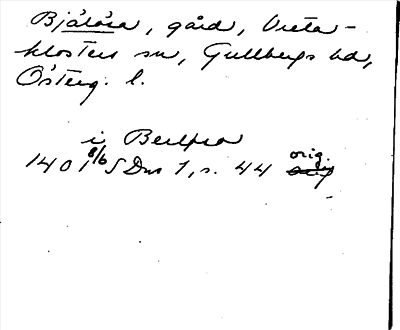 Bjälösa, gård, Vreta-
klosters sn, Gullbergs hd,
Österg. l.
i Berlpsa
1401 8/6 SDns 1, s. 44 orig.